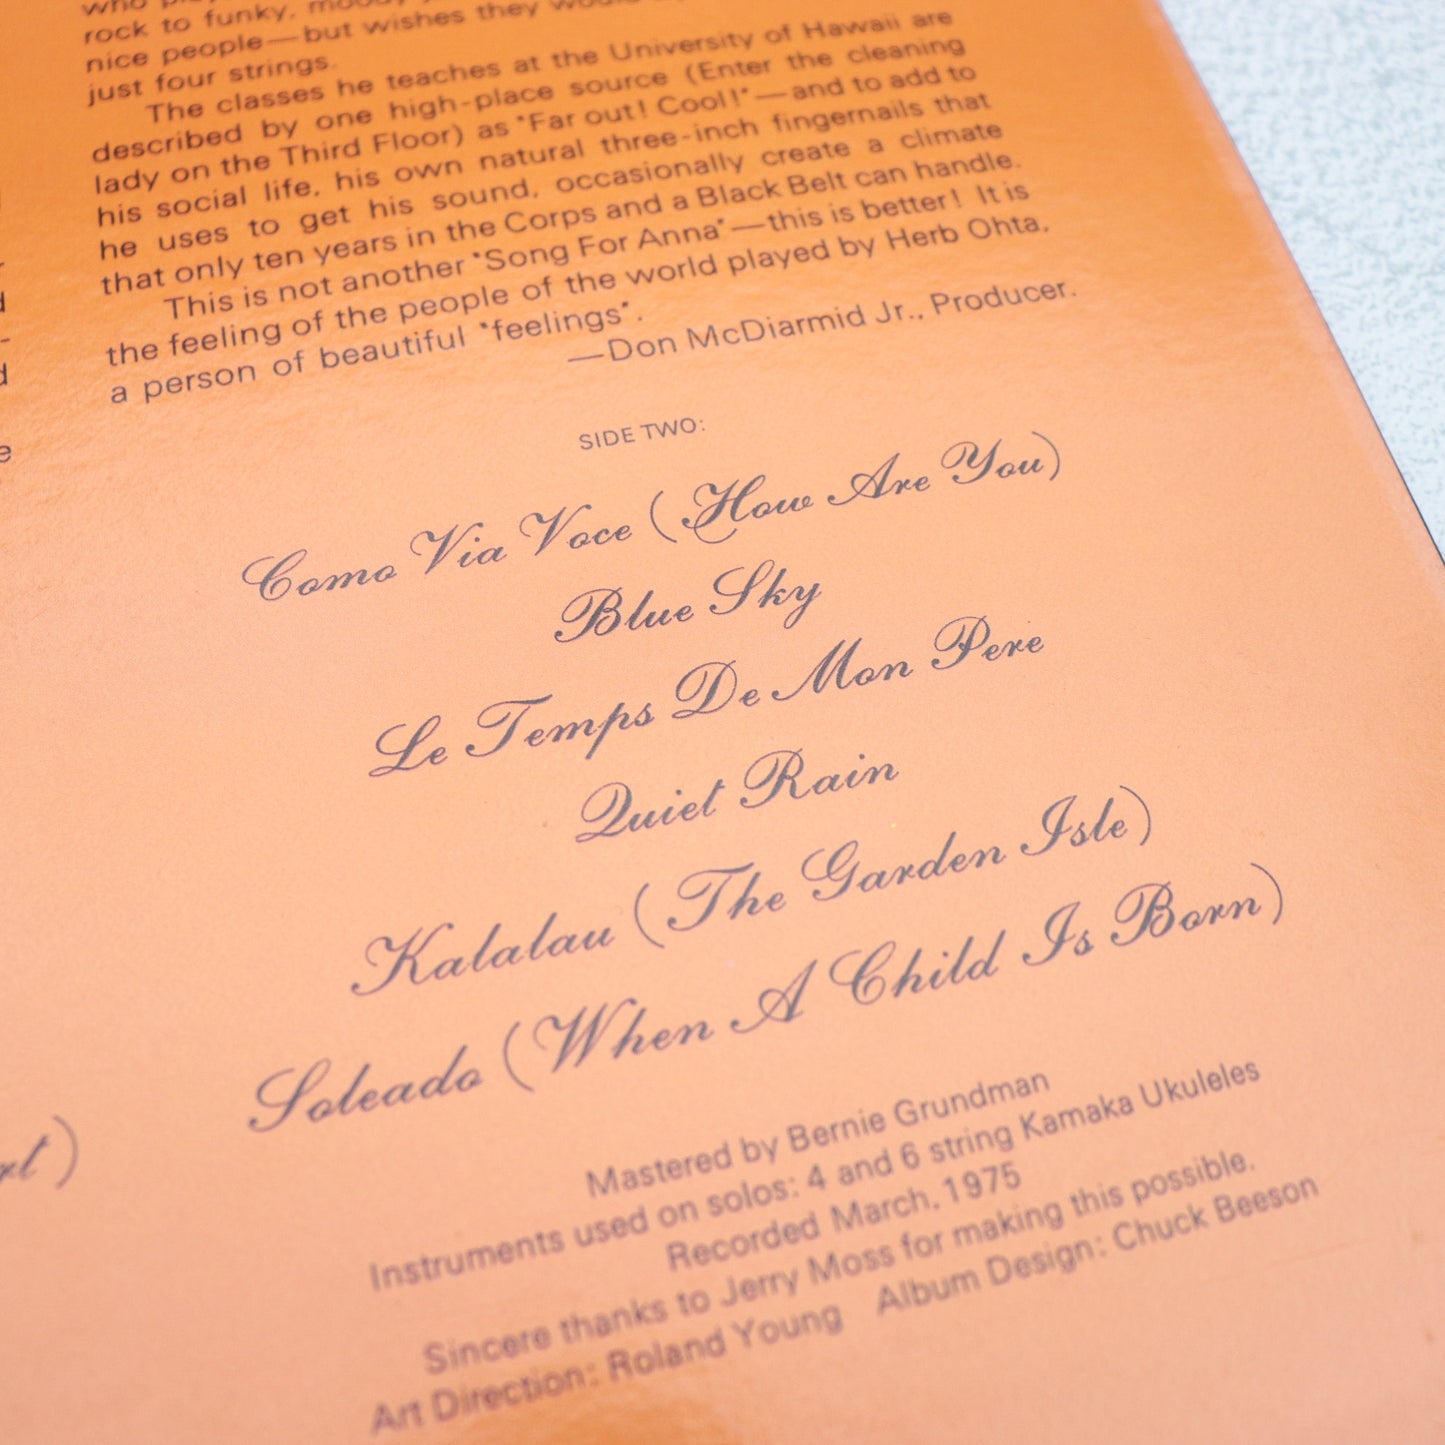 rock to funky, moody
nice people—but wishes they would
just four strings.
The classes he teaches at the University of Hawaii are
described by one high-place source (Enter the cleaning
lady on the Third Floor) as "Far out! Cool!"—and to add to
his social life, his own natural three-inch fingernails that
he uses to get his sound, occasionally create a climate
that only ten years in the Corps and a Black Belt can handle.
This is not another "Song For Anna"—this is better! It is
the feeling of the people of the world played by Herb Ohta,
a person of beautiful "feelings".
—Don McDiarmid Jr., Producer.
SIDE TWO:
Como Via Voce (How Are You)
Blue Sky
Le Temps De Mon Pere
Quiet Rain
Kalalau (The Garden Isle)
Soleado (When A Child Is Born)
Mastered by Bernie Grundman
Instruments used on solos: 4 and 6 string Kamaka Ukuleles
Recorded March, 1975
Sincere thanks to Jerry Moss for making this possible.
Art Direction: Roland Young Album Design: Chuck Beeson